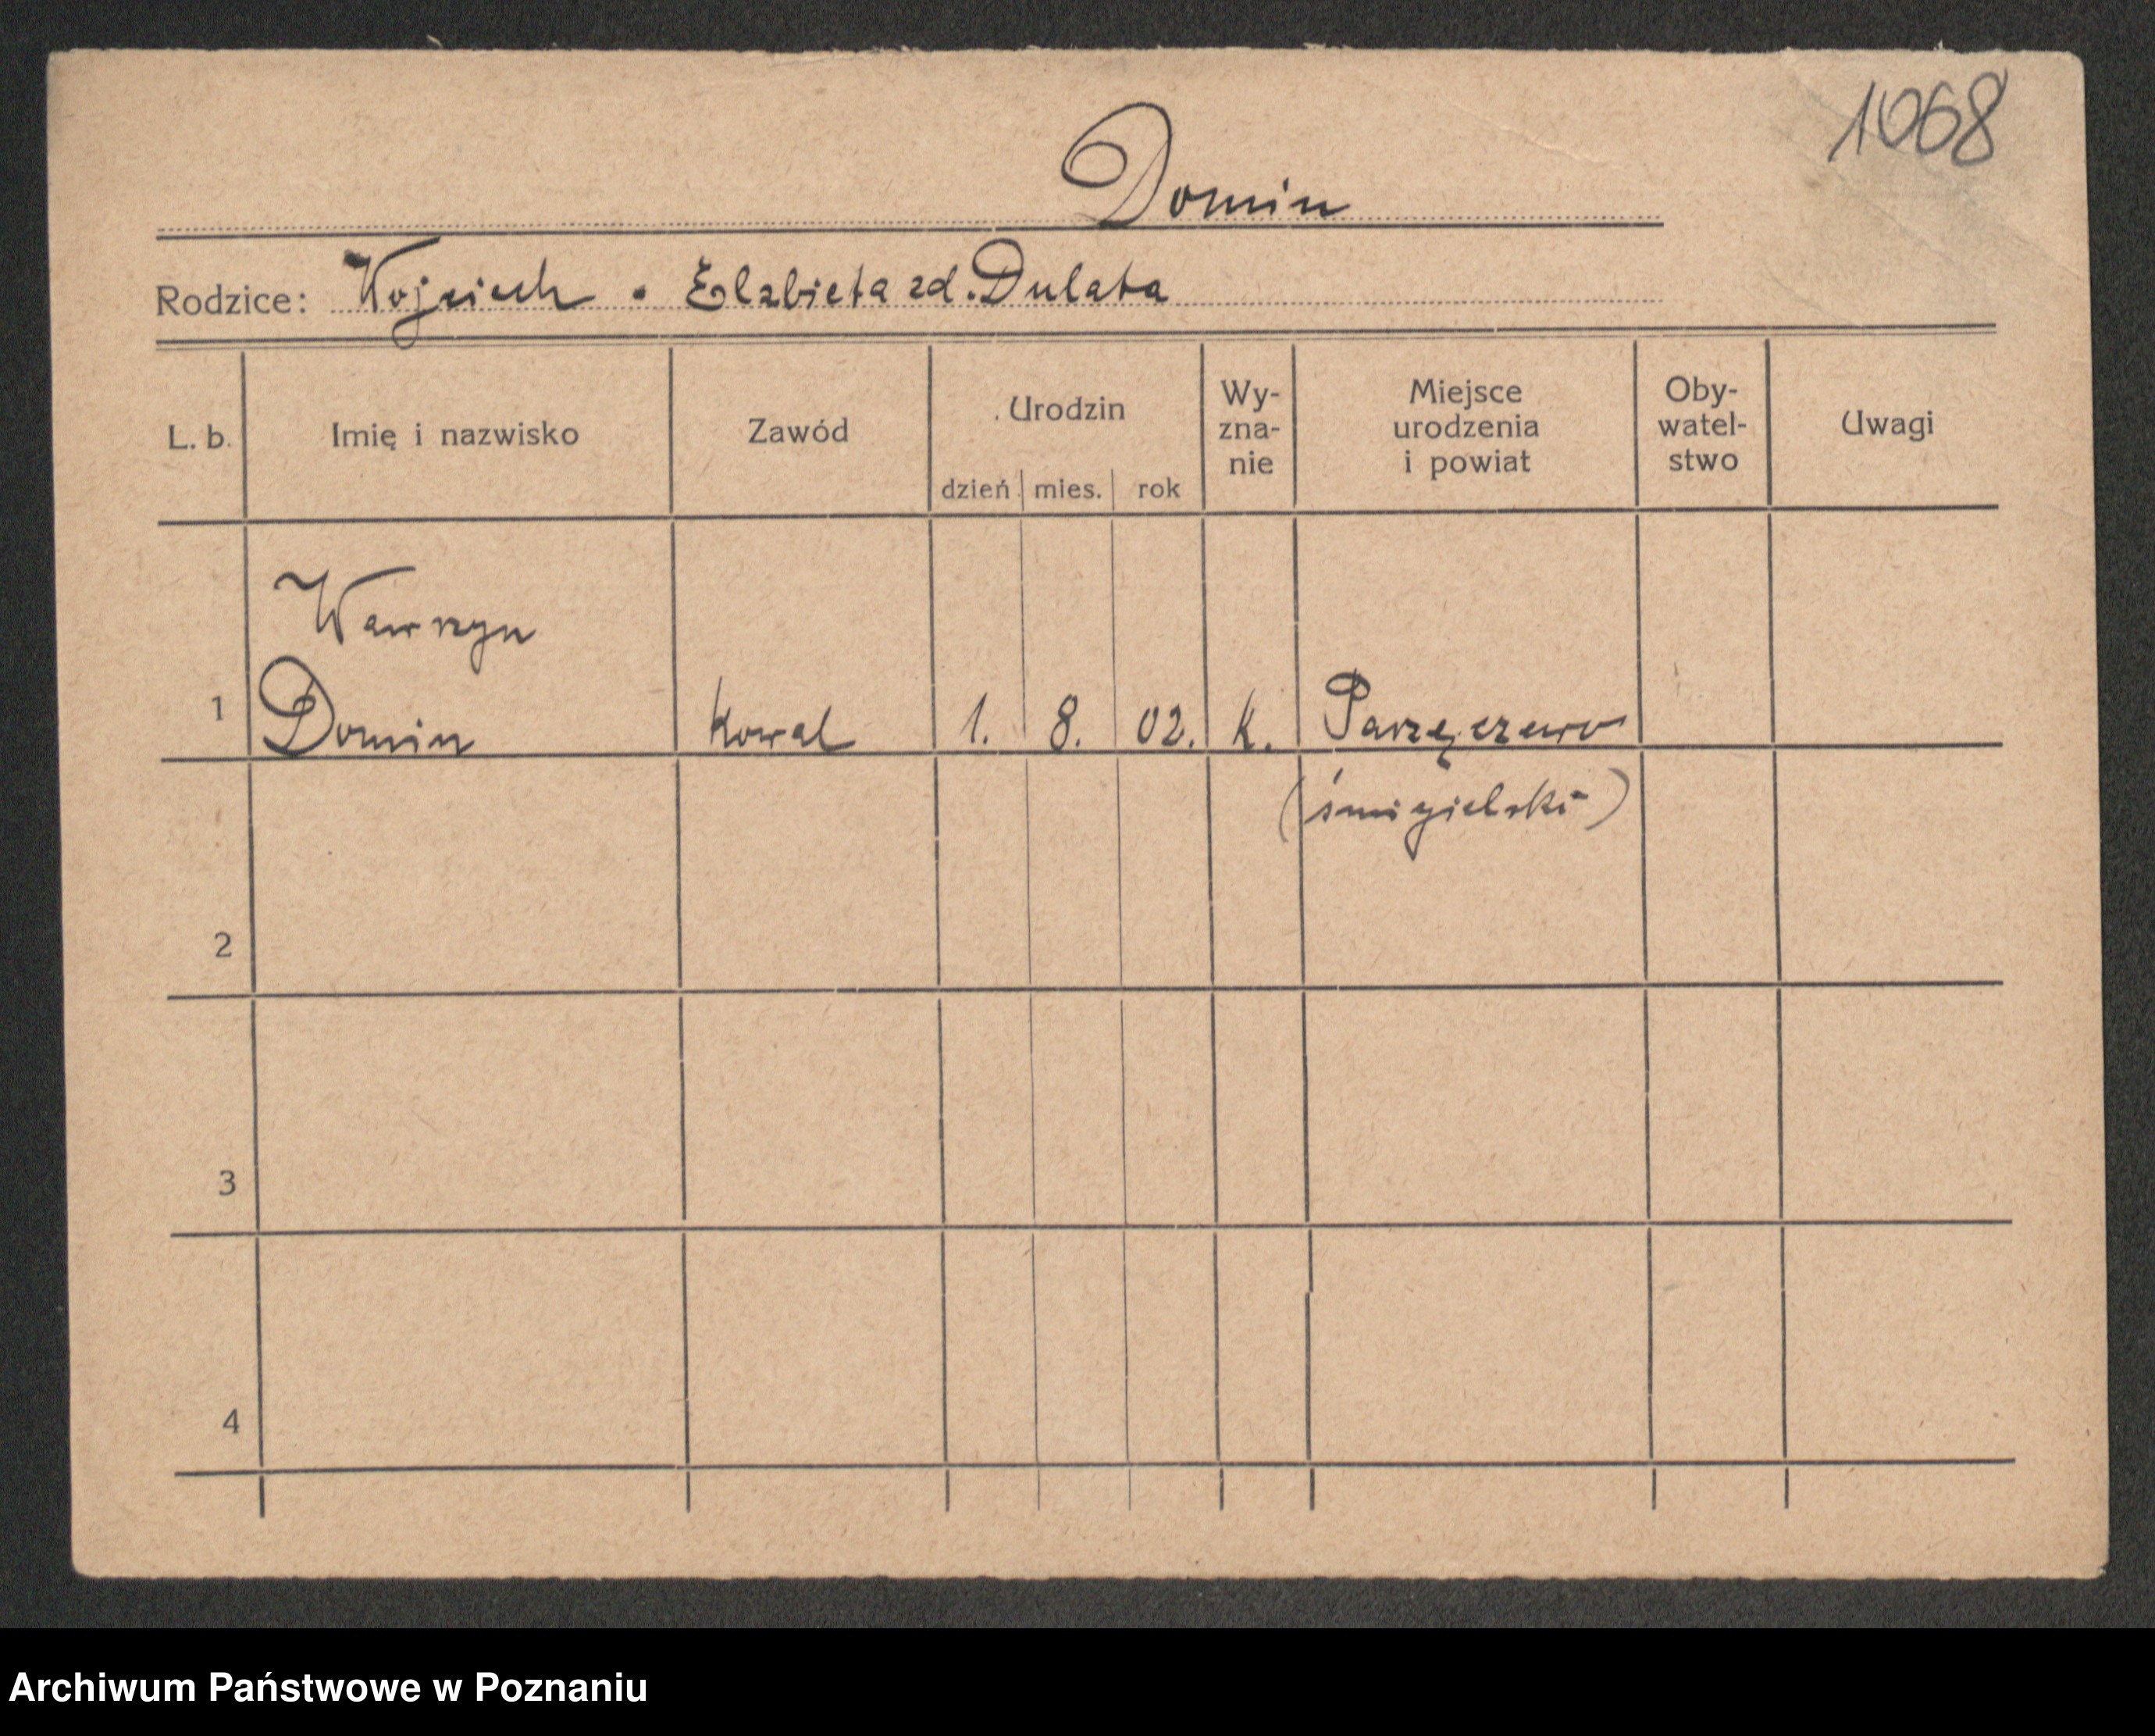 1068
Domin
Rodzice: Wojciech . Elzbieta zd. Dulata
L. b. Imię i nazwisko Zawód Urodzin Wy- Miejsce Oby- Uwagi
zna- urodzenia watel-
nie i powiat stwo
dzień mies. rok
Wawrzyn
1 Domin Kowal 1. 8. 02. K. Parzęczewo
(śmigielski)
2
3
4
Archiwum Państwowe w Poznaniu